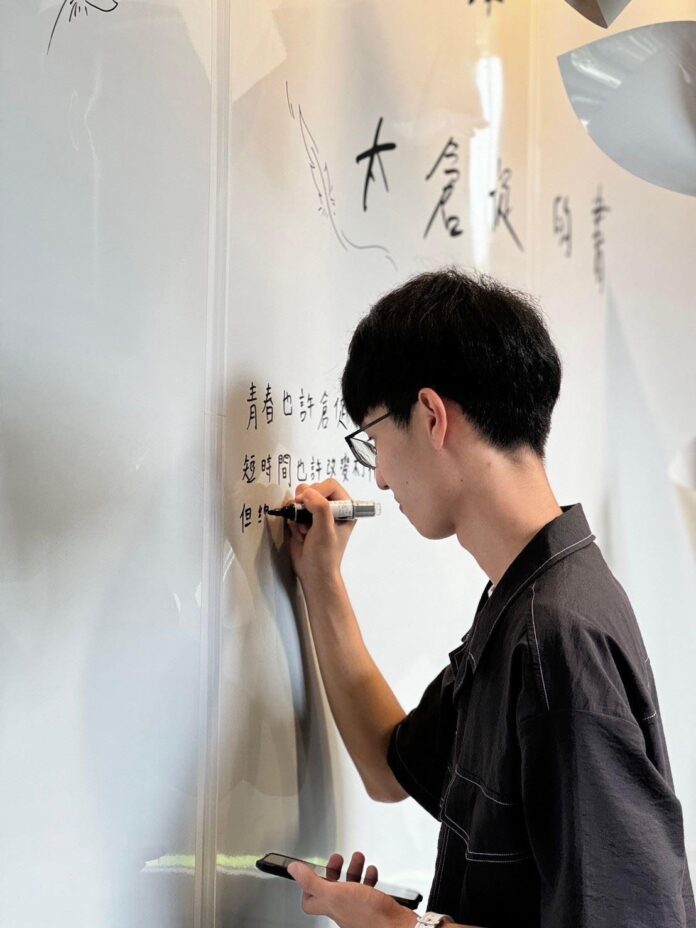 太倉促的書
青春也許倉促
短時間也許改變不
但